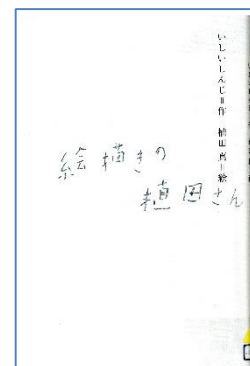 いしいしんじ＝作　植田 真＝絵
絵描きの
植田さん